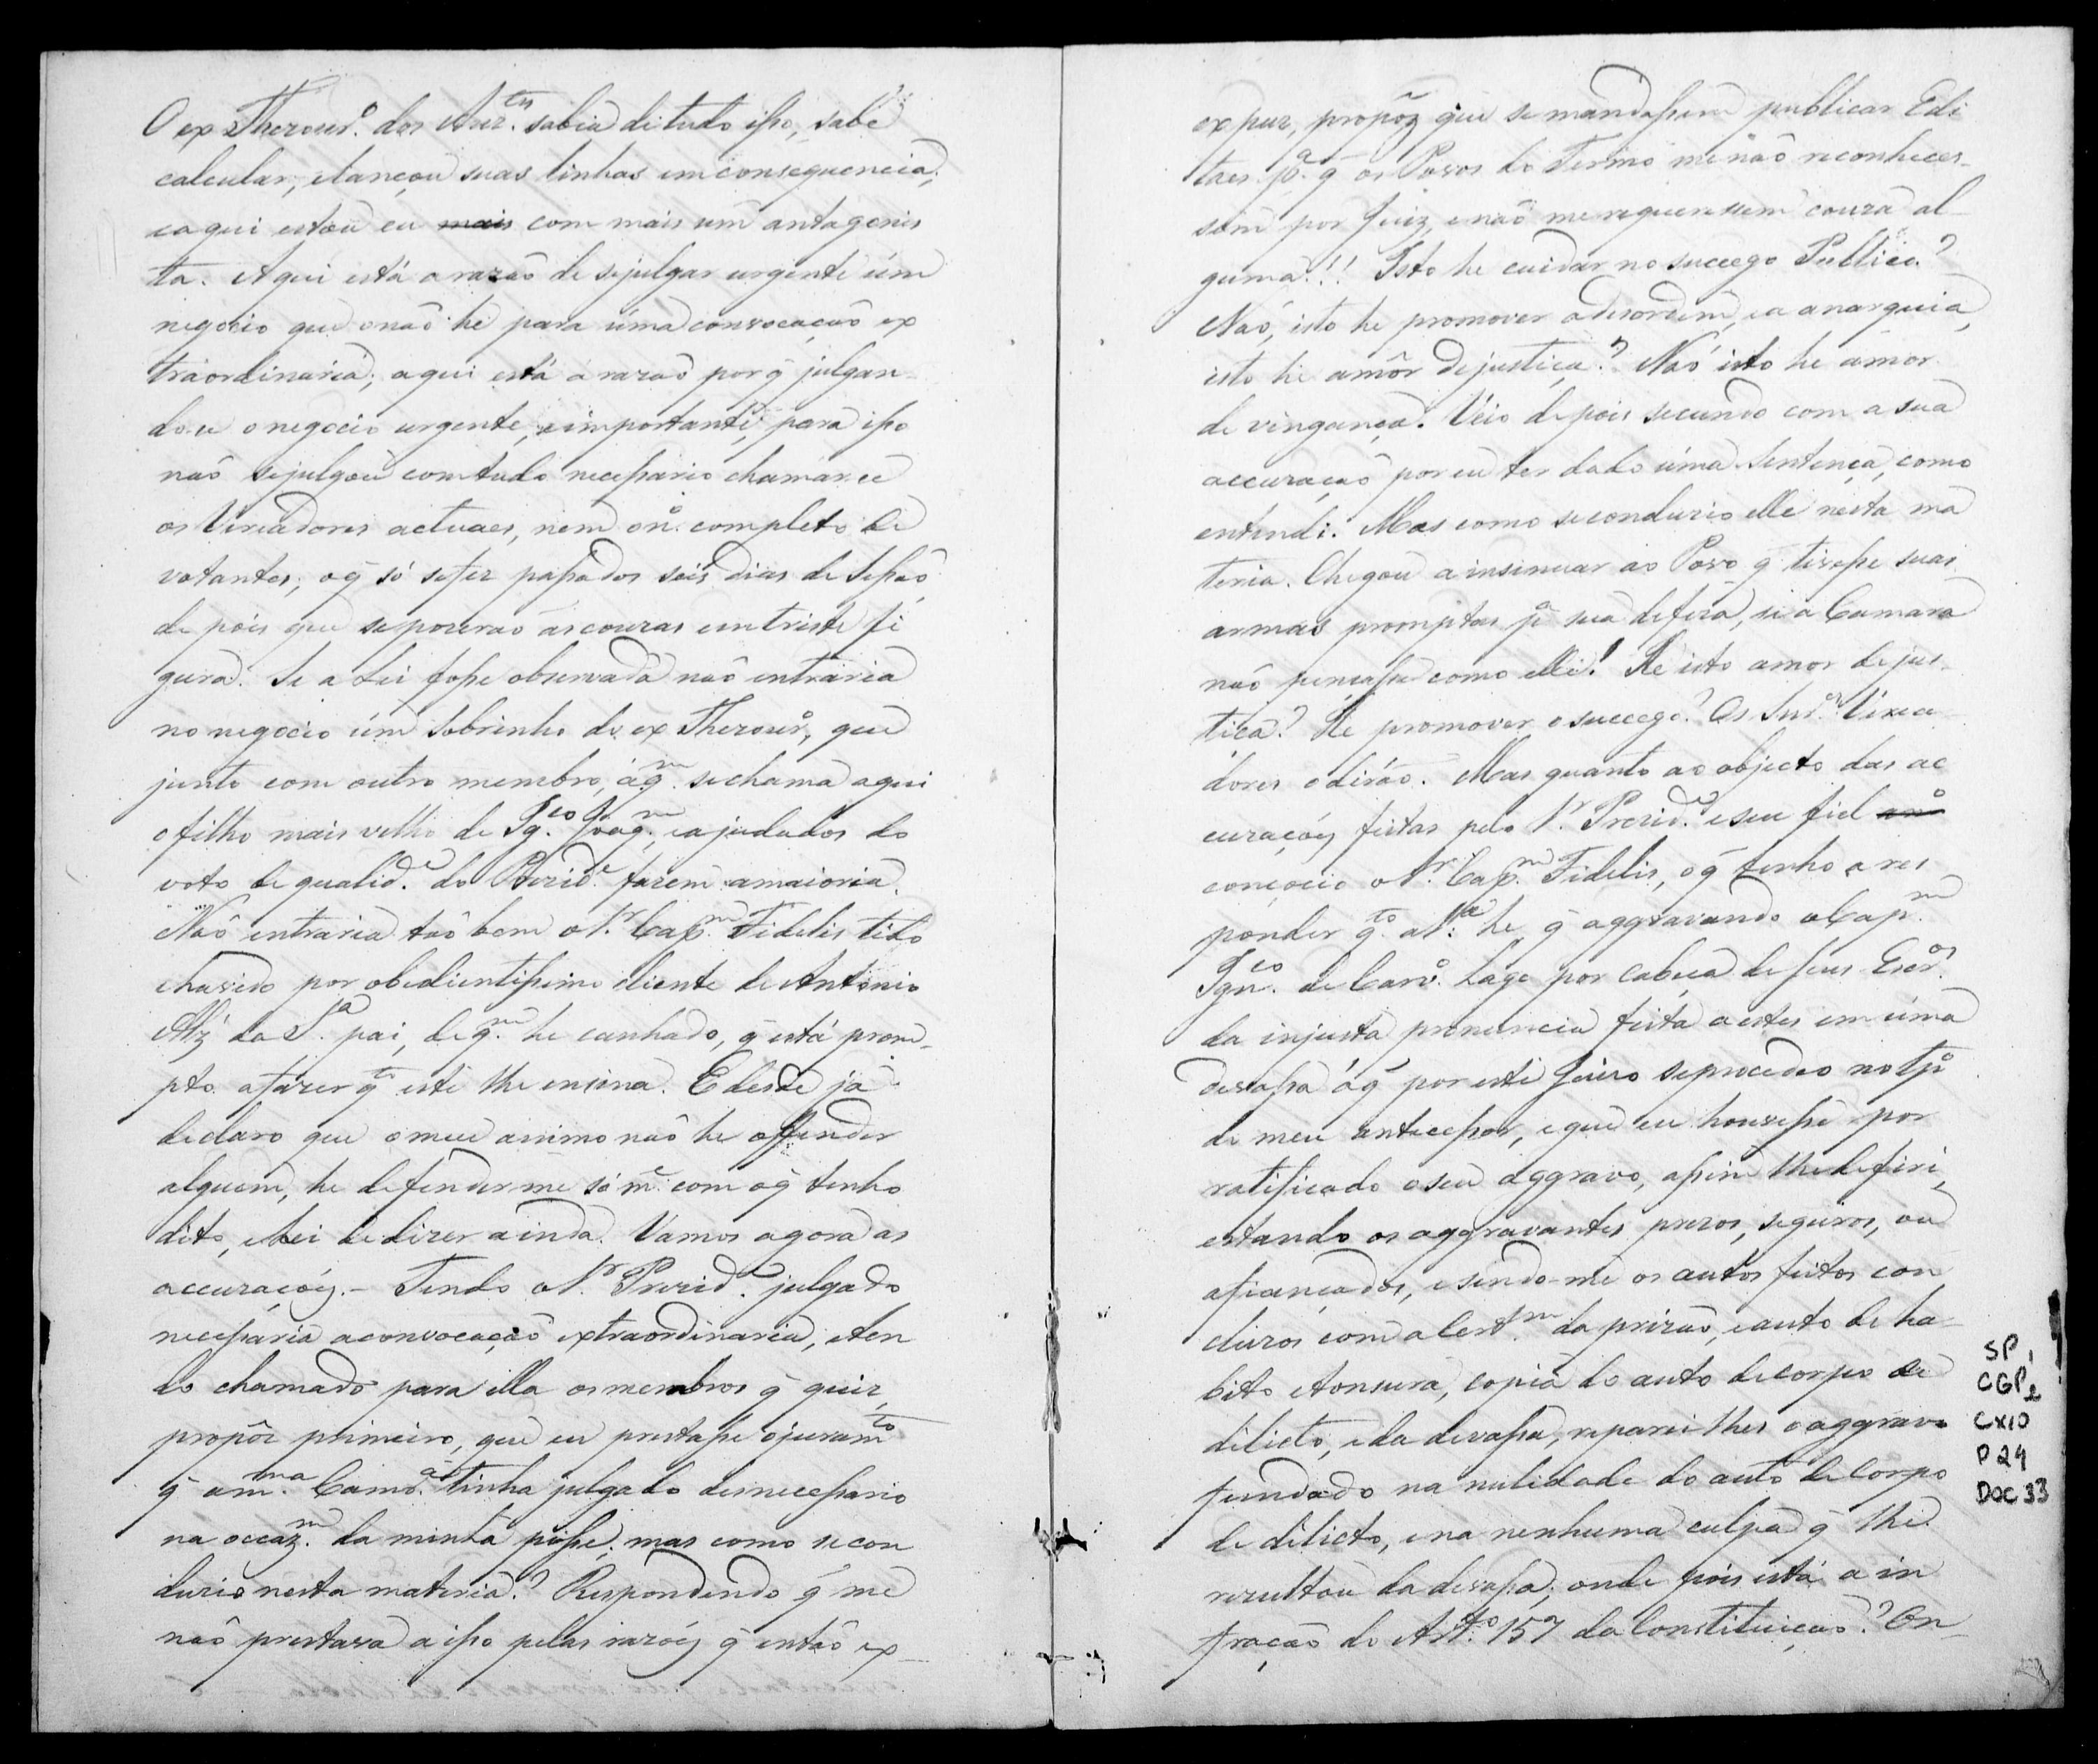 O ex Thezour.º dos Auz.tes sabia di tudo isso, sabe
calcular, e lançou suas linhas em consequencia,
e aqui estou eu mais com mais um antagonis
ta. Aqui está a razaõ de se julgar urgente úm
negocio que o naõ he para úma convocaçaõ ex
traordinaria; aqui está a razaõ por q̃ julgan-
do-se o negocio urgente, e importante, para isso
naõ se julgou com tudo necessario chamar-se
os Vereadores actuaes, nem o nº completo de
votantes; o q̃ só se fez passados seis dias de Sessaõ,
depois que se pozeraõ as couzas em triste fi
gura. Se a Lei fosse observada naõ entraria
no negocio úm Sobrinho do ex Thezourº, que
junto com outro membro, á q.m se chama aqui
o filho mais velho de Ig.co Joaq.m, e ajudados do
voto de qualid.e do Prezid.e fazem a maioria.
Naõ entraria taõ bem o S.r Cap.m Fidelis tido
e havido por obedientissimo cliente de Antonio
Alz̃ da S.a pai, de q.m he cunhado, q̃ está prom-
pto a fazer q.to este lhe ensina. E desde já
declaro que o meu animo naõ he offender
alguem, he defender-me só m.e com o q̃ tenho
dito, e hei de dizer ainda. Vamos agora as
accuzações. - Tendo o S.r Prezid.e julgado
necessaria a convocaçaõ extraordinaria, e ten
do chamado para ella os membros q̃ quiz,
propôz primeiro, que eu prestasse o juram.to
q̃ a m.ma Camr.a tinha julgado desnecessario
na occaz.m da minha posse; mas como se con
duzio nesta materia? Respondendo q̃ me
naõ prestava a isso pelas razões q̃ entaõ ex-
ex puz, propôz que se mandassem publicar Edi
taes p.a q̃ os Povos do Termo me naõ reconheces-
sem por Juiz, e naõ me requeressem couza al-
guma!!! Isto he cuidar no succego Publico?
Naõ, isto he promover a dezordem, e a anarquia,
isto he amôr de justiça? Naõ isto he amor
de vingança. Veio depois secundo com a sua
accuzaçaõ por eu ter dado úma Sentença, como
entendi. Mas como se conduzio elle nesta ma
teria. Chegou a insinuar ao Povo q̃ tivesse suas
armas promptas pª sua defeza, se a Camara
naõ pençasse como elle! He isto amor de jus-
tiça? He promover o succego? Os Snr.es Verea
dores o diráõ. Mas quanto ao objecto das ac
cuzações feitas pelo S.r Prezid.e e seu fiel
conçocio o S.r Cap.m Fidelis, o q̃ tenho a res
ponder q.to a 1.a he q̃ aggravando o Cap.m
Ign.co de Carv.º Lage por cabeça de seus Escr.os
da injusta pronuncia feita a estes em úma
devassa á q̃ por este Juizo se procedeo no tpº
de meu antecessor, e que eu houvesse por
ratificado o seu aggravo, assim lhe deferi,
estando os aggravantes prezos, seguros, ou
afiançados, e sendo-me os autos feitos con
cluzos com a Cert.m da prizaõ, e auto de ha-
bito e tonsura, copia do auto de corpo de
delicto, e da devassa, reparei-lhes o aggravo
fundado na nulidade do auto de Corpo
de delicto, e na nenhuma culpa q̃ lhe
rezultou da devassa; onde pois está a in
fraçaõ do Art.º 157 da Constituiçaõ? On-
SP,
CGP2
CX10
P24
DOC 33